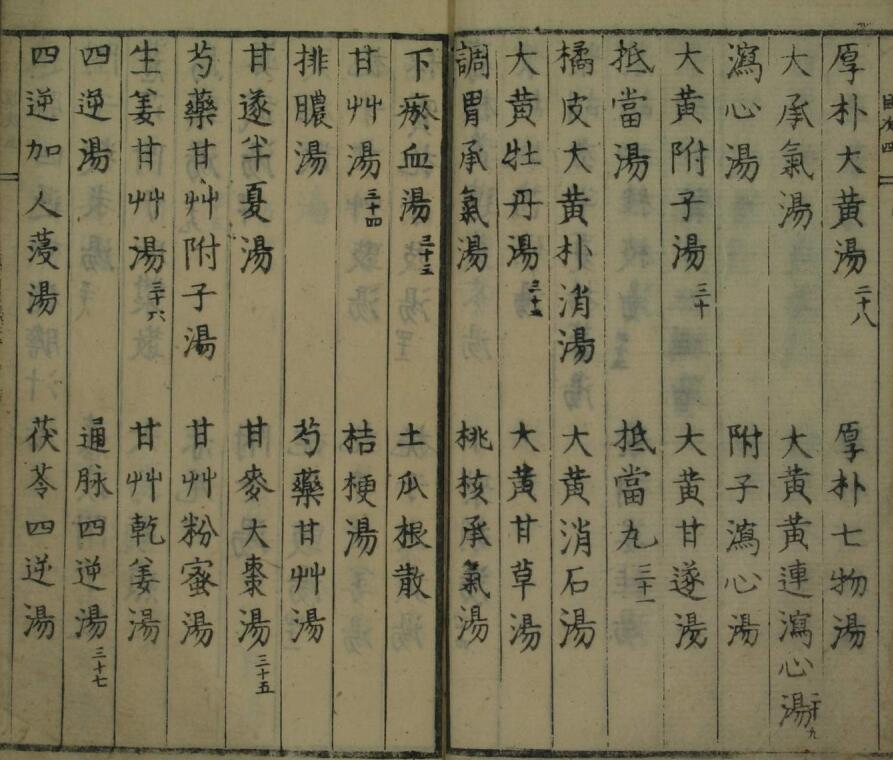 厚朴大黃湯二十八 厚朴七物湯
大承氣湯 大黃黃連瀉心湯二十九
瀉心湯 附子瀉心湯
大黃附子湯三十 大黃甘遂湯
抵當湯 抵當丸三十一
橘皮大黃朴消湯 大黃消石湯
大黃牡丹湯 大黃甘草湯
調胃承氣湯 桃核承氣湯
下瘀血湯三十三 土瓜根散
甘艸湯三十四 桔梗湯
排膿湯 芍藥甘艸湯
甘遂半夏湯 甘麥大棗湯三十五
芍藥甘艸附子湯 甘艸粉蜜湯
生姜甘艸湯三十六 甘艸乾姜湯
四逆湯 通脉四逆湯三十七
四逆加人薓湯 茯苓四逆湯